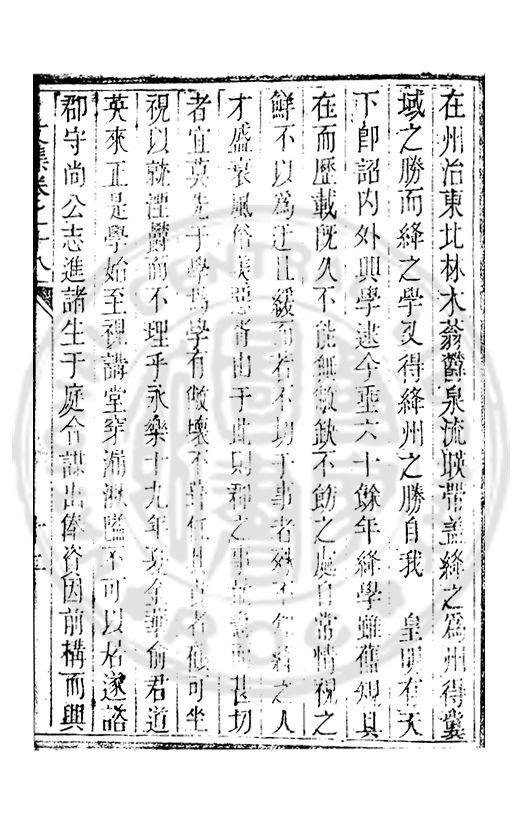 在州治東北林木蓊鬱泉流暎帶盖絳之爲州得襄
域之勝而絳之學又得絳州之勝自我　皇明有天
下卽詔內外興學逮今垂六十餘年絳學雖舊規具
在而歷載旣久不能無敝缺不飭之處自常情視之
鮮不以爲迂且緩而若不切于事者殊不知賢之人
才盛衰風俗美惡胥由于此則郡之事最急而甚切
者宜莫先于學爲學有敝壞不葺仕州者傯可坐
視以就湮鬱而不理乎永樂十九年金華俞君道
英來正是學始至視講堂穿漏湫隘不可以居遂諮
郡守尚公志進諸生于庭合謀出俸資因前構而興
文集卷之十八